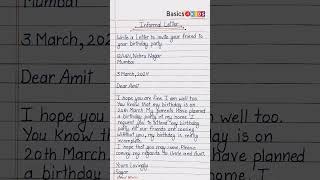 Basics 4 KIDS
Informal Letter
Write a letter to invite your friend to
your birthday party.
Nehru Nagar
Mumbai
3 March, 2024
Dear Amit
I hope you are fine. I am well too.
You know that my birthday is on
20th March. My parents have planned
a birthday party at my home. I
request you to attend my birthday
party. All our friends are coming.
Without you, my birthday is really
incomplete.
I hope that you may come. Please
convey my regards to Uncle and Aunt.
Yours Lovingly
Sagar
Mumbai
3 March, 202
Dear Amit
I hope you
well too.
You know
is on
20th March
have planned
a birthday